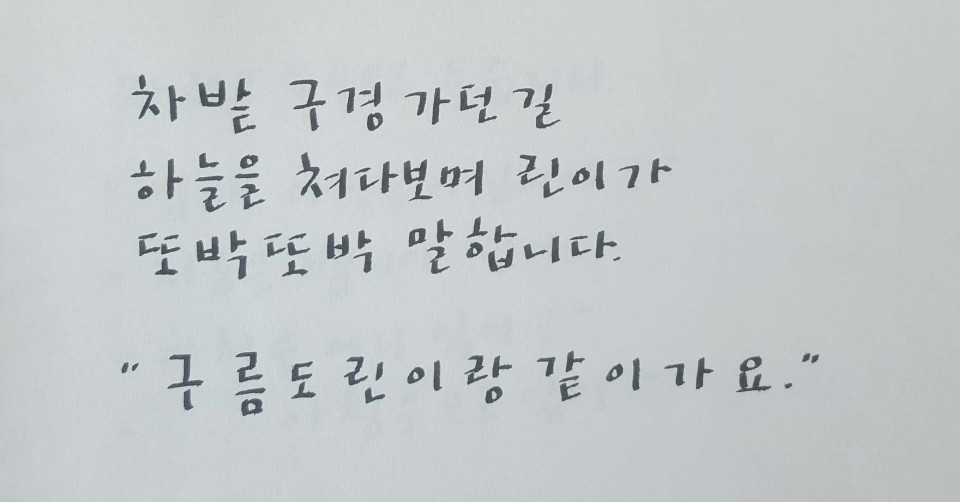 차밭 구경 가던 길
하늘을 쳐다보며 린이가
또박또박 말합니다.
"구름도 린이랑 같이 가요."